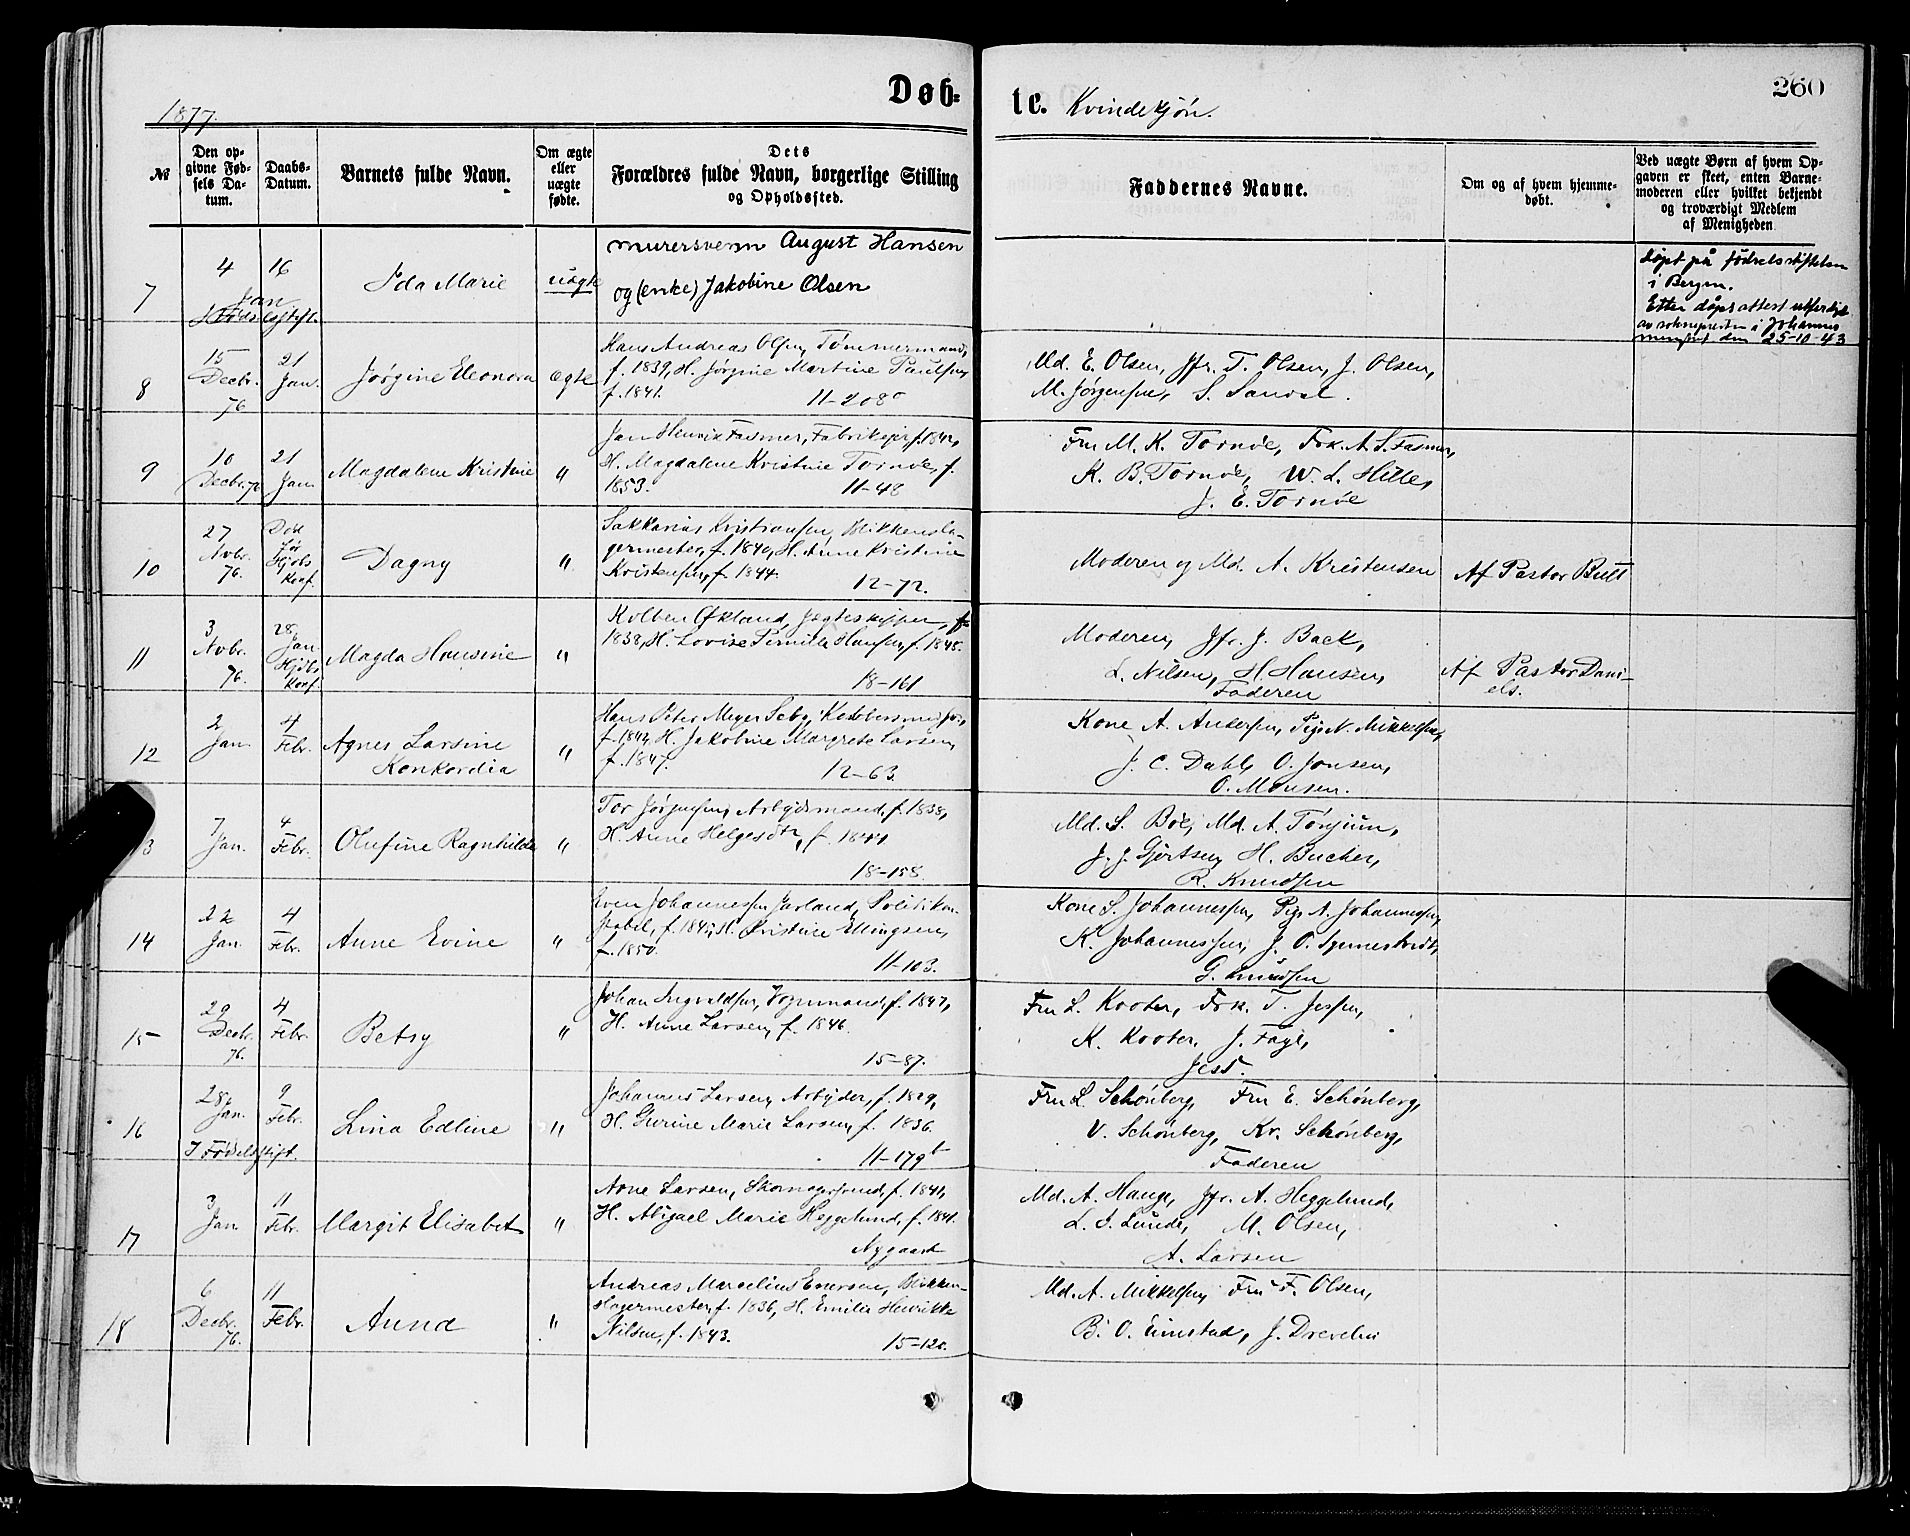 1877.
Døb-
te. Kvindekjøn.
260
№
Den op-
givne Fød-
sels Da-
tum.
Daabs-
Datum.
Barnets fulde Navn.
Om ægte
eller
uægte
fødte.
Dets
Forældres fulde Navn, borgerlige Stilling
og Opholdssted.
Faddernes Navne.
Om og af hvem hjemme-
døbt.
Ved uægte Børn af hvem Op-
gaven er skeet, enten Barne-
moderen eller hvilket bekjendt
og troværdigt Medlem
af Menigheden
7
4
16
Jan
Ida Marie
uægte
murersvenn August Hansen
og (enke) Jakobine Olsen
Døpt på fødselsstiftelsen
i Bergen.
Etter dåpsattest utferdiget
av soknepresten i Johannes
menighet den 25-10-43
8
15
Decbr.
76
21
Jan.
Jørgine Eleonora
ægte
Hans Andreas Olsen, Tømmermand,
f. 1839, H. Jørgine Martine Paulsen,
f. 1841.
11-208
Md. E. Olsen, Jfr. T. Olsen, J. Olsen,
M. Jørgensen, S. Sandal.
9
10
Decbr. 76
21
Jan.
Magdalene Kristine
"
Jan Henrik Fasmer, Fabrikejer, f. 1842,
H. Magdalene Kristine Tornøe, f.
1853.
11-48
Fru M. K. Tornøe, Frk. A. S. Fasmer,
K. B. Tornøe, W. L. Hille,
J. E. Tornøe
10
27
Nvbr.
76.
Død
før
Hjdbs
Konf.
Dagny
"
Sakkarias Kristiansen, Blikkensla-
germester, f. 1840, H. Anne Kristine
Kristensen, f. 1844.
12-72.
Moderen og Md. A. Kristensen
Af Pastor Bull
11
3
Nvbr.
76.
28
Jan
Hjdbs
Konf.
Magda Hansine
"
Kolben Økland, Jægteskipper, f.
1838, H. Lovise Pernille Hansen, f. 1845.
18-161
Moderen, Jfr. J. Back,
L. Nilsen, H. Hansen,
Faderen
Af Pastor Dani-
els.
12
2
Jan.
4
Febr.
Agnes Larsine
Konkordia
"
Hans Peter Meyer Seby, Kobbersmedsv.,
H. Jakobine Margrete Larsen,
f. 1847.
12-63.
Kone A. Andersen, Pige N. Mikkelsen,
J. C. Dahl, O. Jonsen,
O. Monsen.
3
7
Jan.
4
Febr.
Olufine Ragnhilde
"
Tor Jørgensen, Arbejdsmand, f. 1838,
H. Anne Helgesdtr, f. 1844
18-158.
Md. S. Boe, Md. A. Tønjum,
J. J. Gjertsen, H. Bucher,
R. Knudsen
14
22
Jan.
4
Febr.
Anne Evine
"
Even Johannessen Jarland, Politikon-
stabel, f. 1845, H. Kristine Ellingsen,
f. 1850.
11-103.
Kone S. Johannessen, Pige A. Johannessen,
K. Johannessen, J. O. Synnestvedt,
G. Knudsen
15
29
Decbr.
76.
4
Febr.
Betsy
"
Johan Ingvaldsen, Vognmand, f. 1847,
H. Anne Larsen, f. 1846.
15-87.
Fru L. Krooter, Frk. T. Jessen,
K. Krooter, J. Fage,
Jest.
16
28
Jan.
I Fødselsstift.
9
Febr.
Lina Edline
"
Johannes Larsen, Arbejder, f. 1829,
H. Gurine Marie Larsen, f. 1836.
11-179b
Fru L. Schönberg, Fru E. Schönberg,
V. Schönberg, Kr. Schönberg,
Faderen
17
3
Jan.
11
Febr.
Margit Elisabet
"
Arne Larsen, Skomagersvend, f. 1841,
H. Abigael Marie Heggelund, f. 1841.
Nygaard
Md. A. Hauge, Jfr. A. Heggelund,
L. J. Lunde, M. Olsen,
A. Larsen
18
6
Decbr.
76.
11
Febr.
Anna
"
Andreas Marcelius Enersen, Blikken-
slagermester, f. 1836, H. Emilie Henrikke
Nilsen, f. 1843.
15-120.
Md. A. Mikkelsen, Fru F. Olsen,
B. O. Eimstad, J. Drevelin